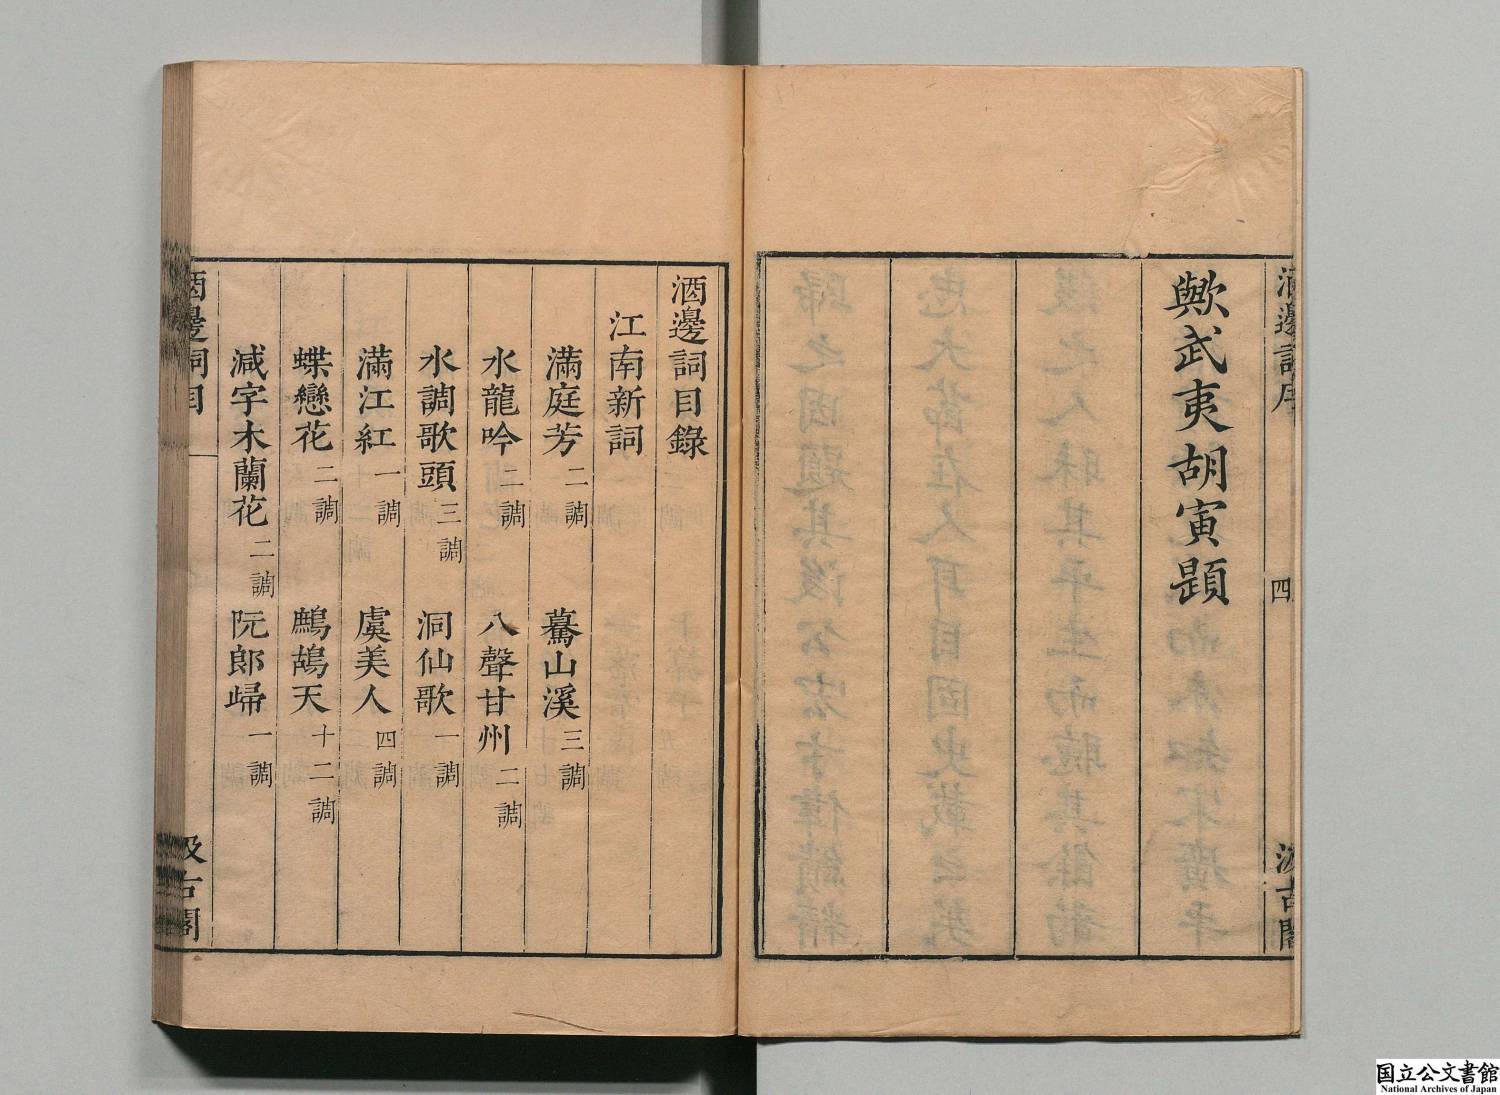 酒邊詞序
四
汲古閣
歟武夷胡寅題
酒邊詞目錄
江南新詞
滿庭芳二調 驀山溪三調
水龍吟二調 八聲甘州二調
水調歌頭三調 洞仙歌一調
滿江紅一調 虞美人四調
蝶戀花二調 鷓鴣天十二調
減字木蘭花二調 阮郎歸一調
酒邊詞目
汲古閣
国立公文書館
National Archives of Japan